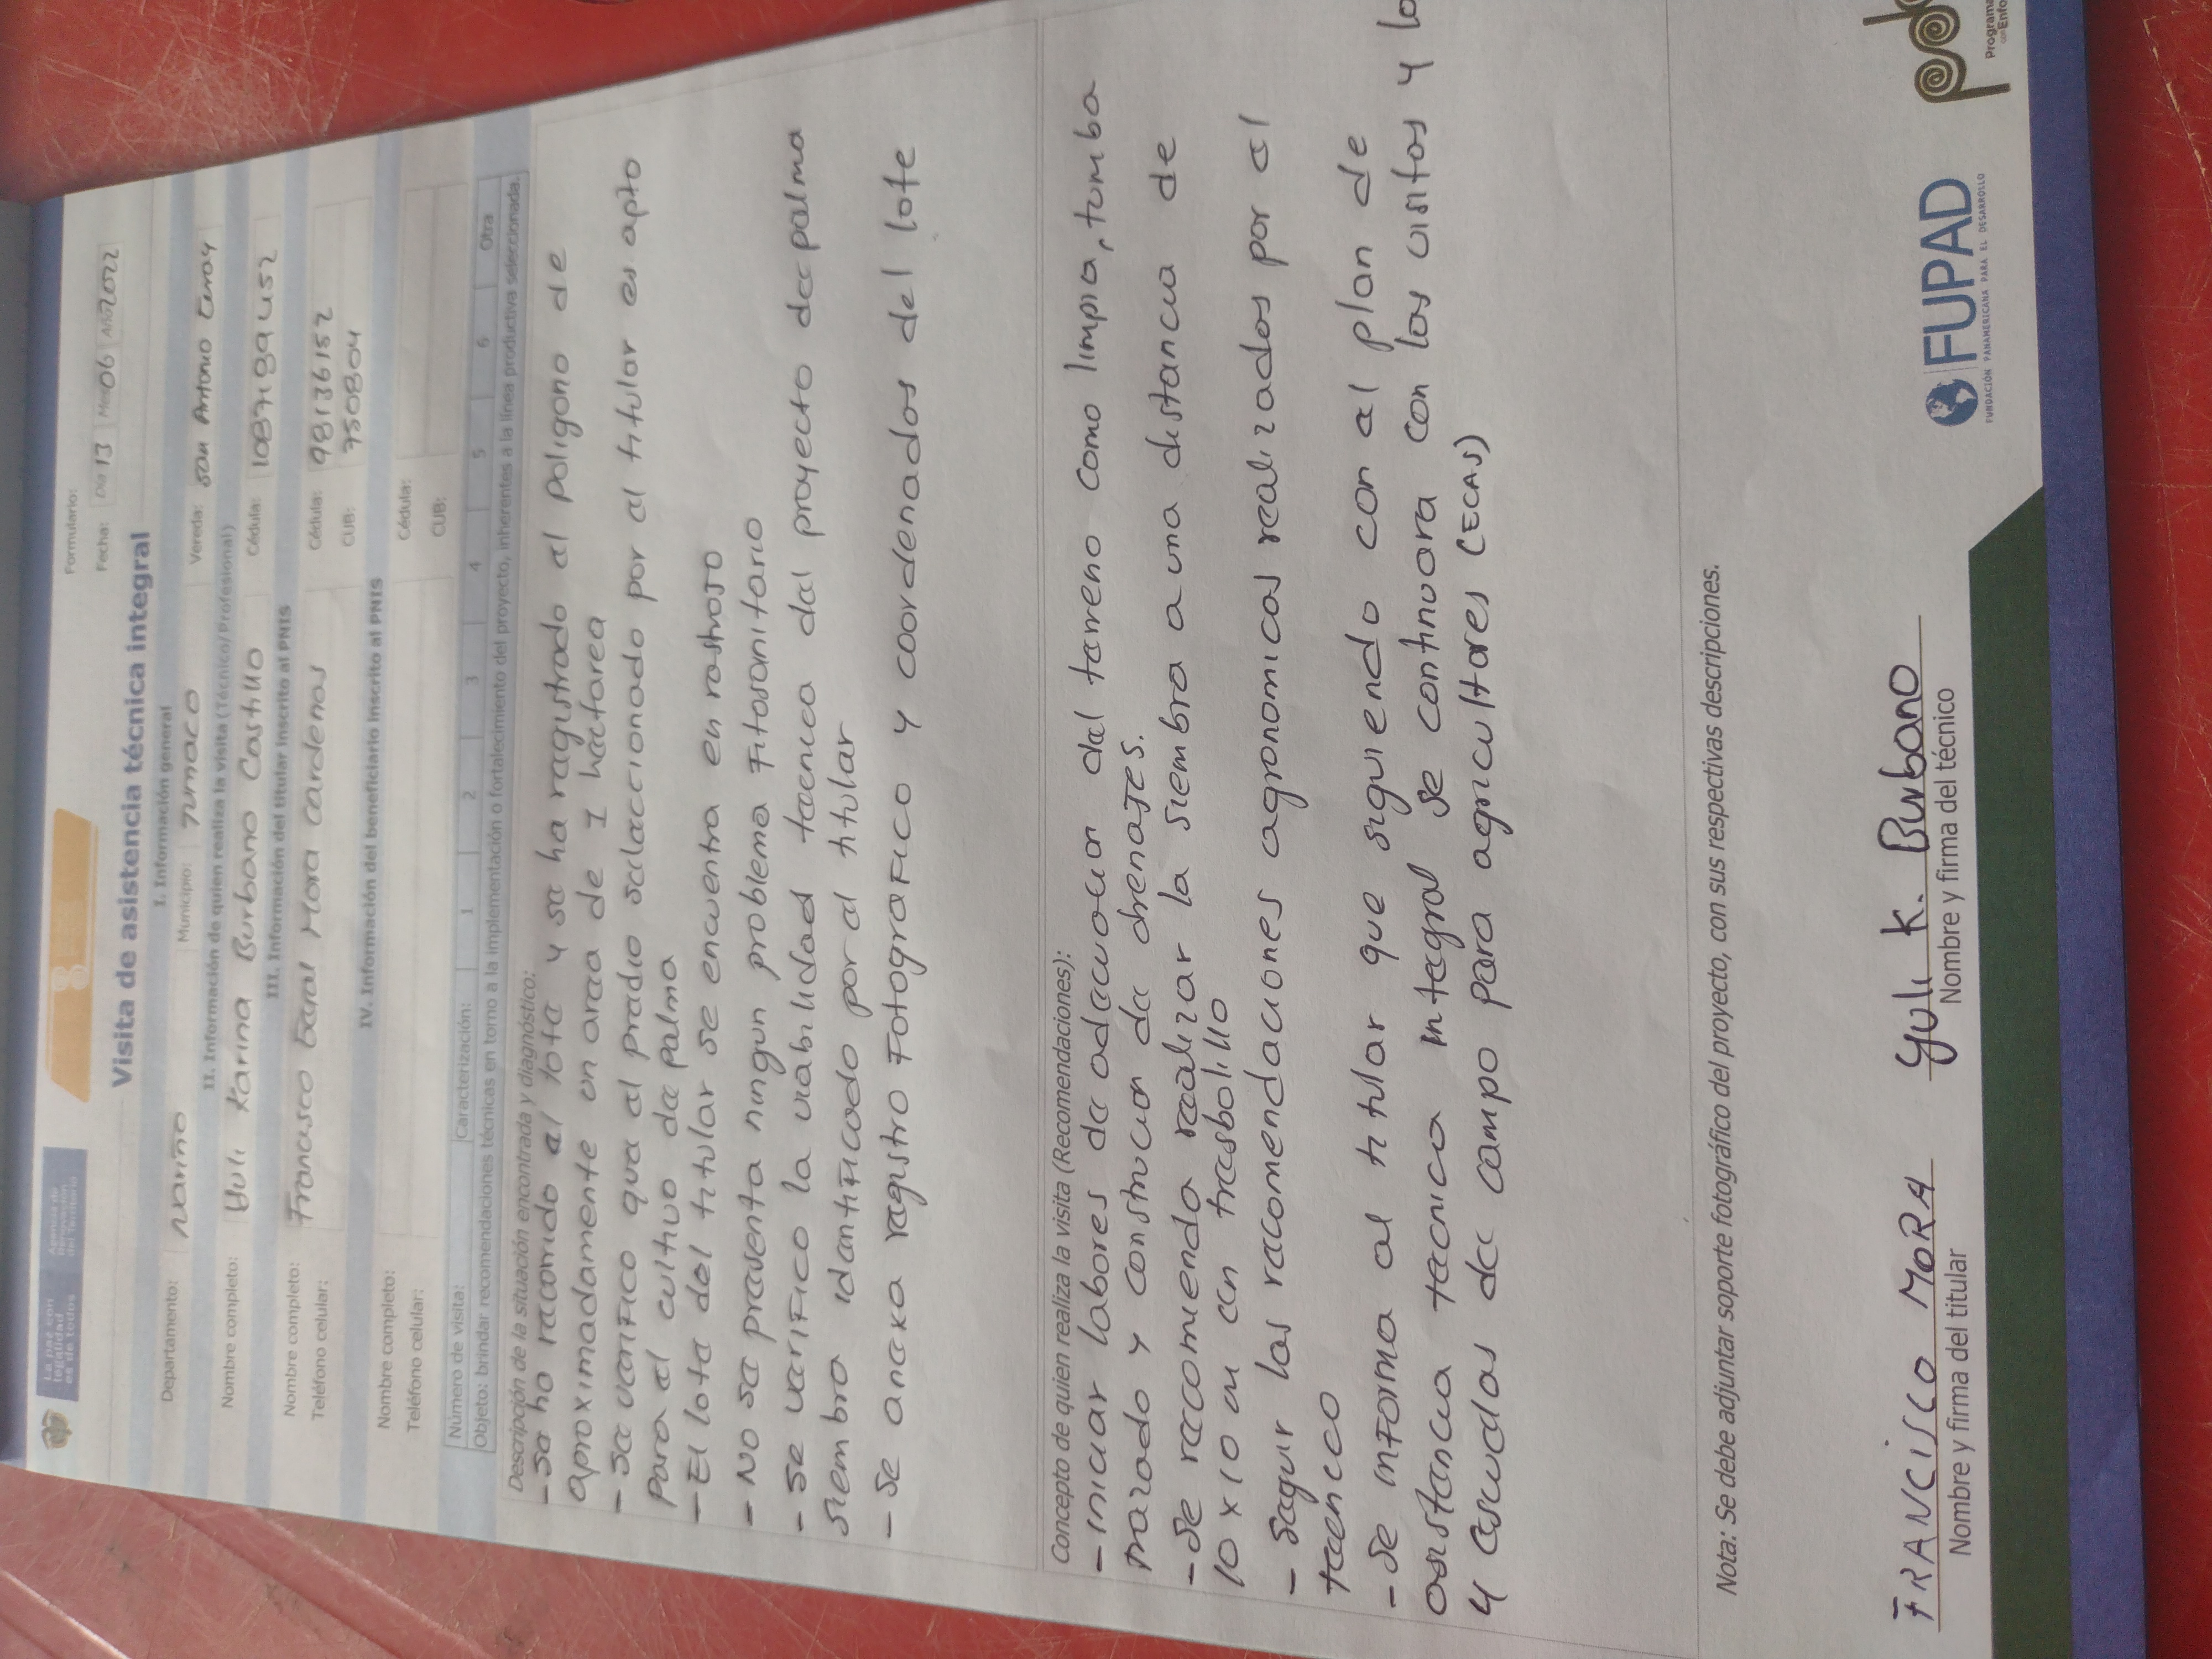 La paz con legalidad es de todos
Agencia de Renovación del Territorio
Formulario:
Fecha: Día 13 Mes 06 Año 2022
Visita de asistencia técnica integral
I. Información general
Departamento: Nariño Municipio: Tumaco Vereda: San Antonio
II. Información de quien realiza la visita (Técnico/Profesional)
Nombre completo: Yuli Karina Burbano Castillo Cédula: 1087189452
III. Información del titular inscrito al PNIS
Nombre completo: Francisco Mora Cardenas Cédula: 98136152
Teléfono celular: CUB: 750804
IV. Información del beneficiario inscrito al PNIS
Nombre completo: Cédula:
Teléfono celular: CUB:
Número de visita: Caracterización: 1 2 3 4 5 6 Otra
Objeto: brindar recomendaciones técnicas en torno a la implementación o fortalecimiento del proyecto, inherentes a la línea productiva seleccionada.
Descripción de la situación encontrada y diagnóstico:
- Se ha recorrido el lote y se ha registrado el poligono de
aproximadamente un area de 1 hactarea
- Se verifico que el predio seleccionado por el titular es apto
para el cultivo de palma
- El lote del titular se encuentra en rastrojo
- No se presenta ningun problema fitosanitario
- Se verifico la viabilidad tecnica del proyecto de palma
siembra identificado por el titular
- Se anexa registro fotografico y coordenadas del lote
Concepto de quien realiza la visita (Recomendaciones):
- iniciar labores de adecuacion del terreno como limpia, tumba
trazado y construccion de drenajes.
- Se recomienda realizar la siembra a una distancia de
10 x 10 m en tresbolillo
- Seguir las recomendaciones agronomicas realizadas por el
tecnico
- Se informa al titular que siguiendo con el plan de
asistencia tecnica integral se continuara con las visitas y lo
y escuelas de campo para agricultores (ECAS)
Nota: Se debe adjuntar soporte fotográfico del proyecto, con sus respectivas descripciones.
FRANCISCO MORA Yuli K. Burbano
Nombre y firma del titular Nombre y firma del técnico
FUPAD
FUNDACIÓN PANAMERICANA PARA EL DESARROLLO
Programa